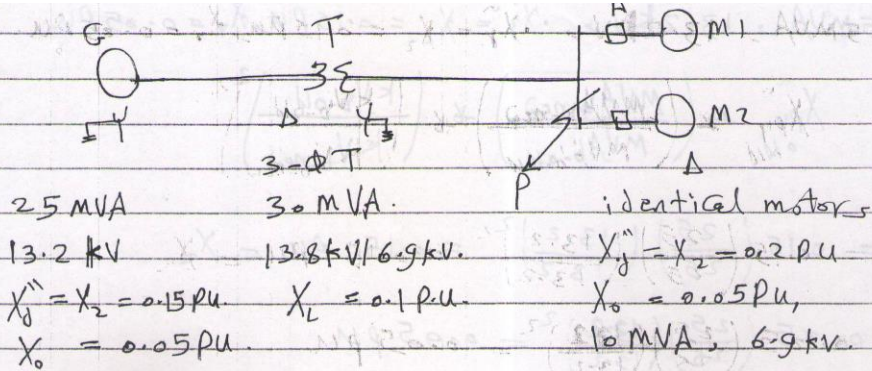 G T A M1
M2
Δ Y Δ
3-φ T P
25 MVA 30 MVA. identical motors
13.2 kV 13.8kV/6.9kV. X"d = X2 = 0.2 PU
X"d = X2 = 0.15 PU. XL = 0.1 P.U. X0 = 0.05PU,
X0 = 0.05 PU. 10 MVA, 6.9 kV.